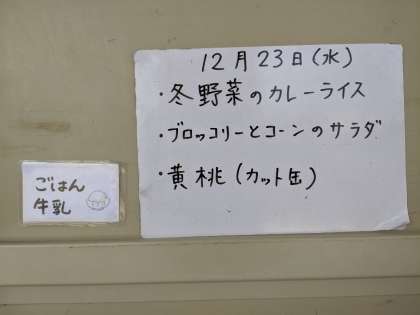 12月23日(水)
・冬野菜のカレーライス
・ブロッコリーとコーンのサラダ
・黄桃(カット缶)
ごはん
牛乳